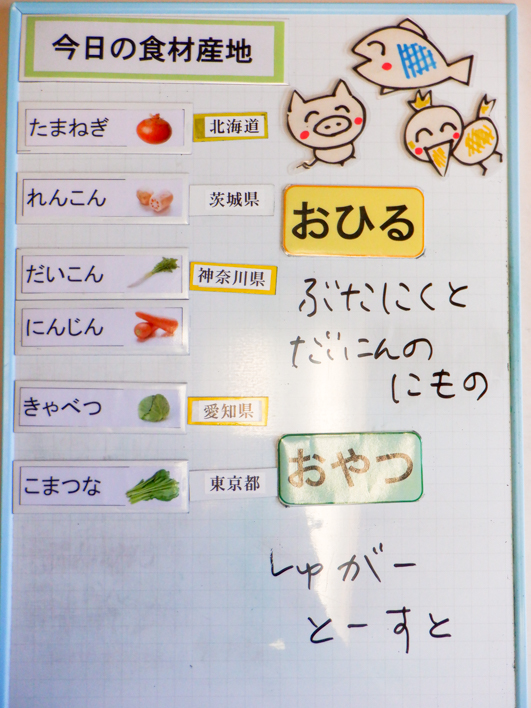 今日の食材産地
たまねぎ 北海道
れんこん 茨城県
だいこん 神奈川県
にんじん
きゃべつ 愛知県
こまつな 東京都
おひる
ぶたにくと
だいこんの
にもの
おやつ
しゅがー
とーすと